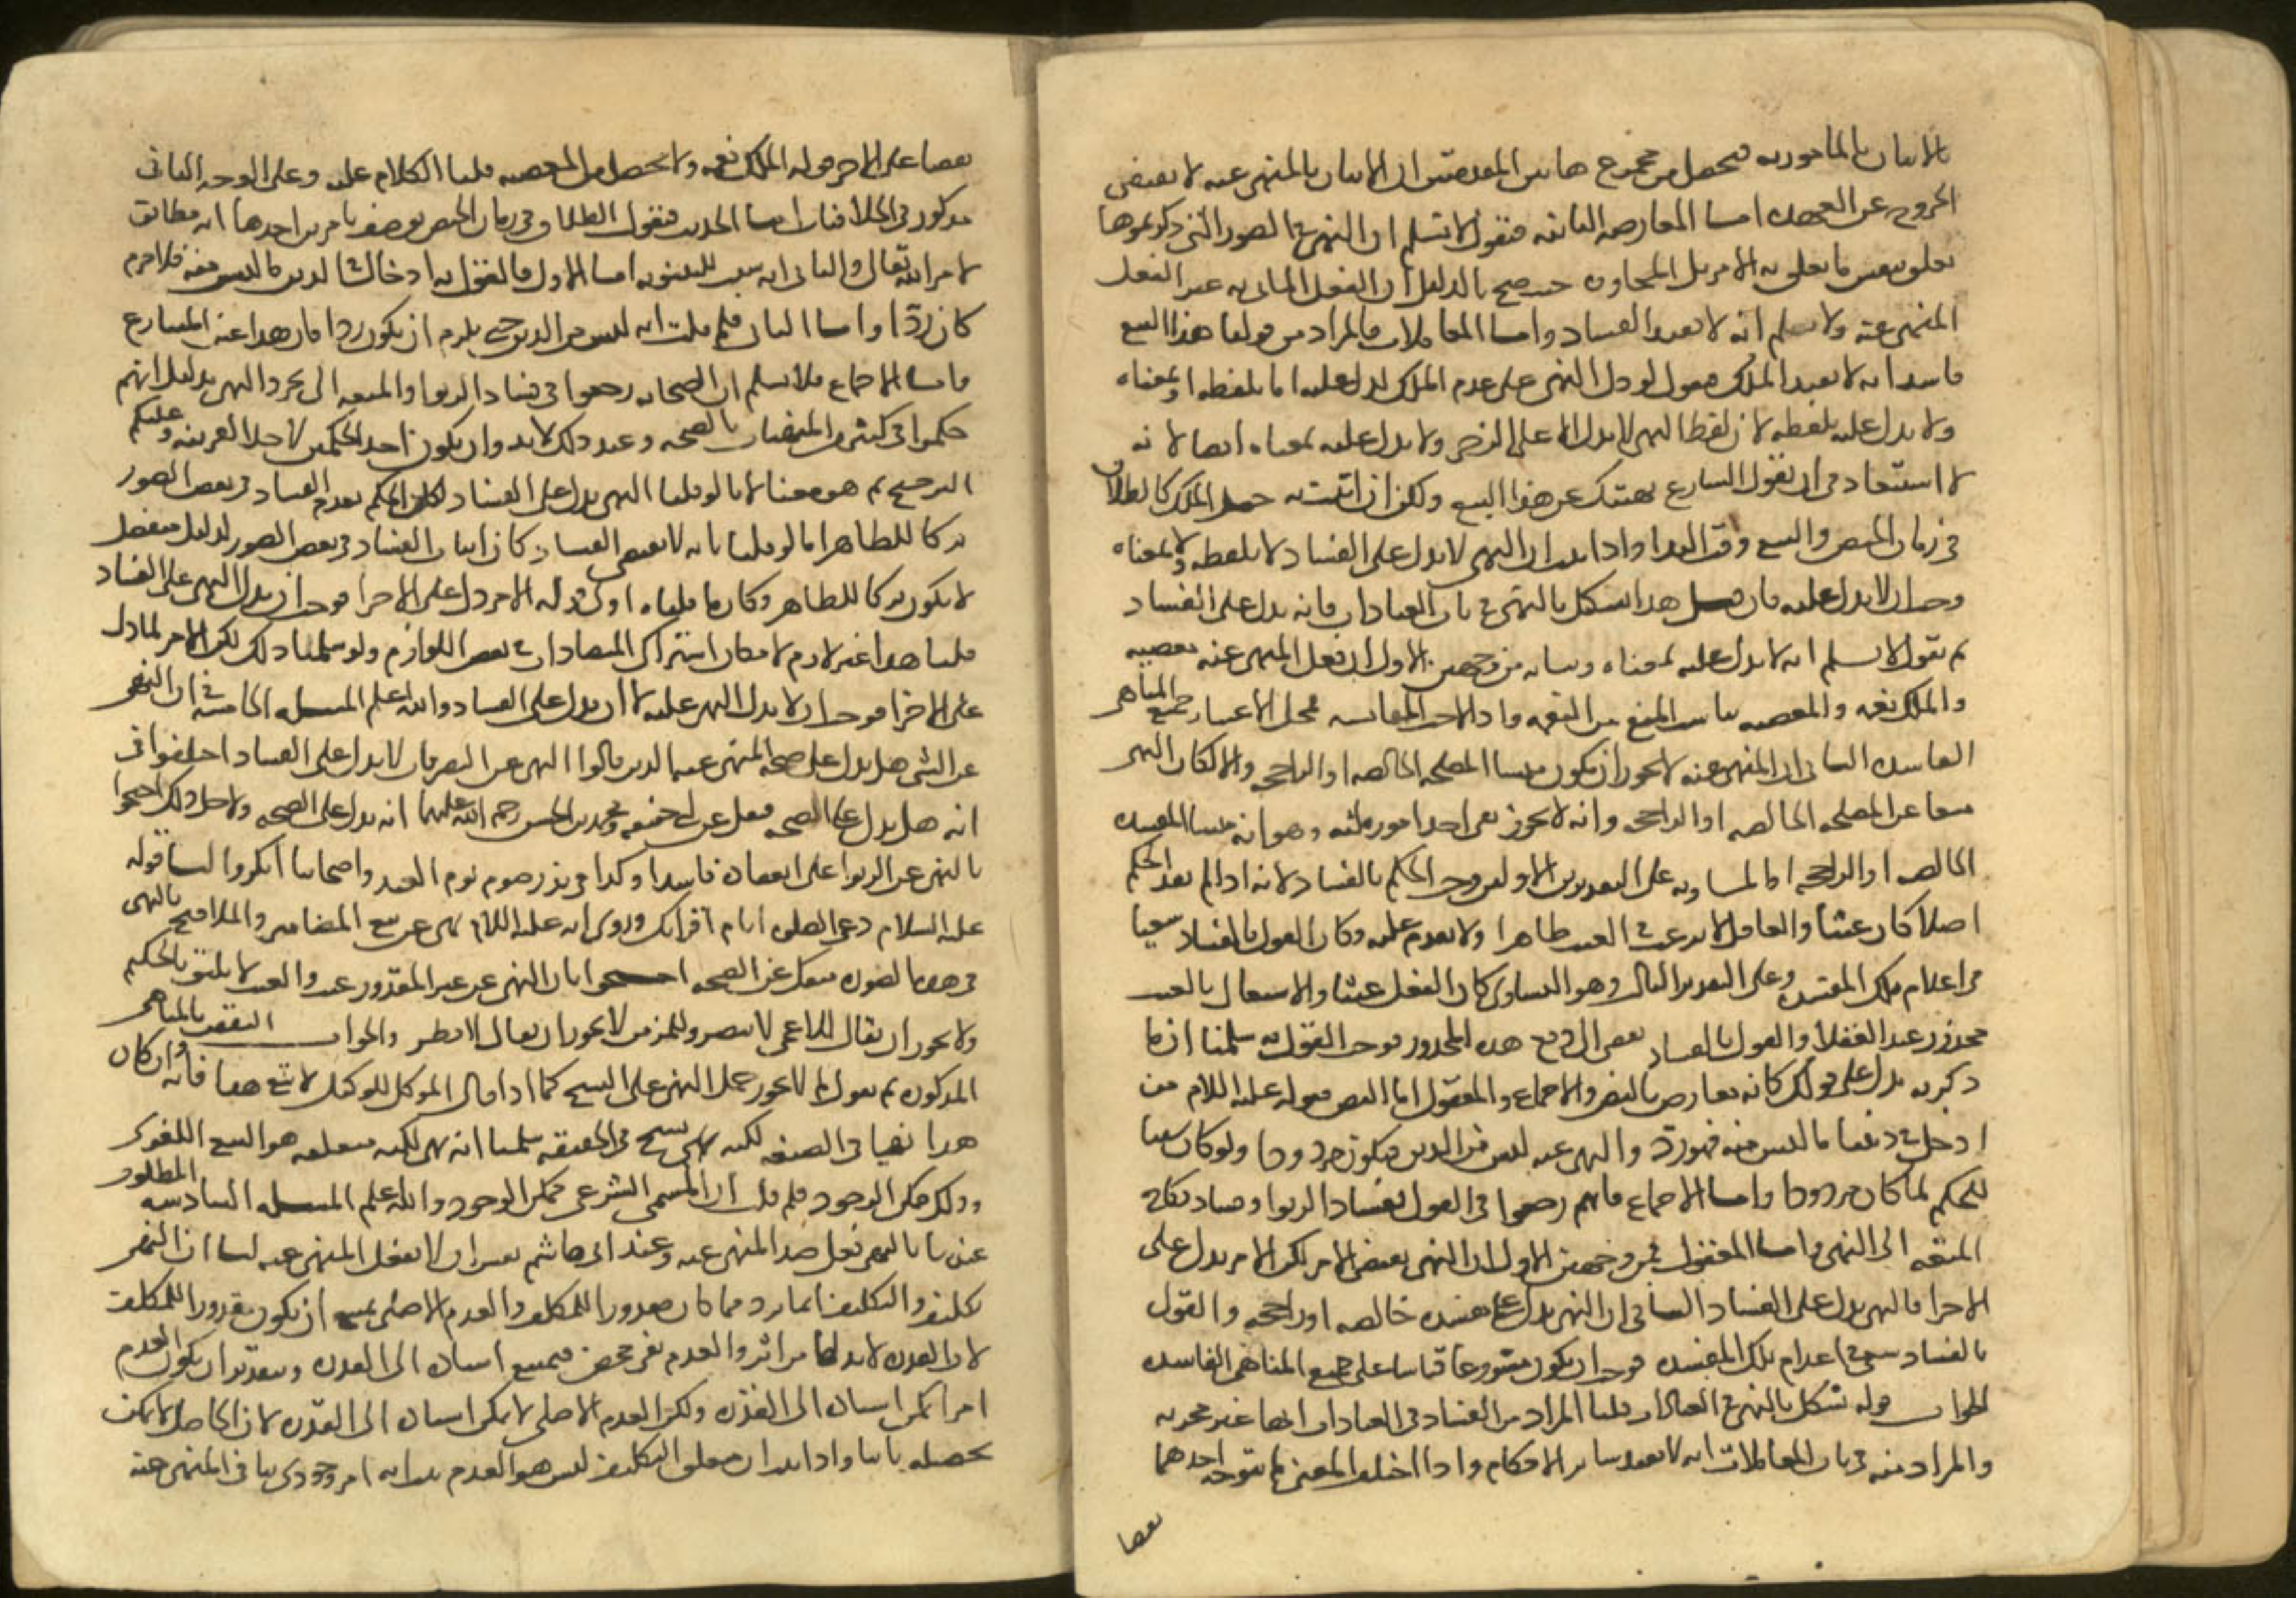 بالاتيان بالمامور به فيحصل من مجموع هاتين المقدمتين ان الاتيان بالمنهي عنه لا يقتضي
الخروج عن العهده اما المعارضه الثانيه فنقول لا نسلم ان النهي في الصور التي ذكرتموها
تعلق بنفس ما تعلق به الامر بل بالمجاور حتى صح بالدليل ان الفعل الماتي به عين الفعل
المنهي عنه ولا نسلم انه لا يفيد الفساد واما المعاملات فالمراد من قولنا هذا البيع
فاسد انه لا يفيد الملك فنقول لو دل النهي على عدم الملك لدل عليه اما بلفظه او بمعناه
ولا يدل عليه بلفظه لان لفظ النهي لا يدل الا على الزجر ولا يدل عليه بمعناه ايضا لانه
لا استبعاد في ان يقول الشارع نهيتك عن هذا البيع ولكن ان اتيت به حصل الملك كالطلاق
في زمان الحيض والبيع وقت الندا واذا ثبت ان النهي لا يدل على الفساد لا بلفظه ولا بمعناه
وجب ان لا يدل عليه فان قيل هذا يشكل بالنهي في باب العبادات فانه يدل على الفساد
ثم نقول لا نسلم انه لا يدل عليه بمعناه وبيانه من وجهين الاول ان فعل المنهي عنه معصيه
والملك نعمه والمعصيه تناسب المنع من النعمه واذا لاحت المناسبه فمحل الاعتبار جميع المناهي
الفاسده الثاني ان المنهي عنه لا يجوز ان يكون منشا المصلحه الخالصه او الراجحه والا لكان النهي
منعا عن المصلحه الخالصه او الراجحه وانه لا يجوز بقي احد امور ثلثه وهو انه منشا المفسده
الخالصه او الراجحه او المساويه على التقديرين الاولين وجب الحكم بالفساد لانه اذا لم يفد الحكم
اصلا كان عبثا والعاقل لا يرغب في العبث ظاهرا ولا يقدم عليه وكان القول بالفساد سعيا
في اعدام تلك المفسده وعلى التقدير الثالث وهو التساوي كان الفعل عبثا والاشتغال بالعبث
محذور عند العقلا والقول بالفساد يفضي الى دفع هذا المحذور فوجب القول به سلمنا ان ما
ذكرته يدل على قولك لكنه معارض بالنص والاجماع والمعقول اما النص فقوله عليه السلام من
ادخل في ديننا ما ليس منه فهو رد والمنهي عنه ليس من الدين فيكون مردودا ولو كان سببا
للحكم لما كان مردودا واما الاجماع فانهم رجعوا في القول بفساد الربوا وفساد نكاح
المتعه الى النهي واما المعقول فمن وجهين الاول ان النهي نقيض الامر لكن الامر يدل على
الاجزا فالنهي يدل على الفساد الثاني ان النهي يدل على مفسده خالصه او راجحه والقول
بالفساد سعي في اعدام تلك المفسده فوجب ان يكون مشروعا قياسا على جميع المناهي الفاسده
الجواب قوله يشكل بالنهي في العبادات قلنا المراد من الفساد في العبادات انها غير مجزيه
والمراد منه في باب المعاملات انه لا يفيد ساير الاحكام واذا اختلف المعنى لم يتوجه احدهما
نقضا
نقضا على الاخر قوله الملك نعمه ولا تحصل من المعصيه قلنا الكلام عليه وعلى الوجه الثاني
مذكور في الخلافيات اما الحديث فنقول الطلاق في زمان الحيض يوصف بامرين احدهما انه مطابق
لامر الله تعالى والثاني انه سبب للبينونه اما الاول فالقول به ادخال في الدين ما ليس منه فلا جرم
كان ردا واما الثاني فلم قلت انه ليس من الدين حتى يلزم ان يكون ردا فان هذا عين المتنازع
فاما الاجماع فلا نسلم ان الصحابه رجعوا في فساد الربوا والمتعه الى مجرد النهي بدليل انهم
حكموا في كثير من المنهيات بالصحه وعند ذلك لا بد وان يكون احد الحكمين لاجل القرينه وعليكم
الترجيح ثم هو معنا لانا لو قلنا النهي يدل على الفساد لكان الحكم بعدم الفساد في بعض الصور
تركا للظاهر اما لو قلنا بانه لا يقتضي الفساد كان اثبات الفساد في بعض الصور لدليل منفصل
لا يكون تركا للظاهر وكان ما قلناه اولى قوله الامر دل على الاجزا فوجب ان يدل النهي على الفساد
قلنا هذا غير لازم لامكان اشتراك المتضادات في بعض اللوازم ولو سلمنا ذلك لكن الامر لما دل
على الاجزا فوجب ان لا يدل النهي عليه لا ان يدل على الفساد والله اعلم المسله الخامسه في ان النهي
عن الشي هل يدل على صحه المنهي عنه الذين قالوا النهي عن التصرفات لا يدل على الفساد اختلفوا في
انه هل يدل على الصحه فنقل عن ابي حنيفه ومحمد بن الحسن رحمه الله عليهما انه يدل على الصحه ولاجل ذلك احتجوا
بالنهي عن الربوا على انعقاده فاسدا وكذا في نذر صوم يوم العيد واصحابنا انكروا لنا قوله
عليه السلام دعي الصلوه ايام اقرايك وروي انه عليه السلام نهى عن بيع المضامين والملاقيح بالنهي
في هذه الصوره منفك عن الصحه احتجوا بان النهي عن غير المقدور عبث والعبث لا يليق بالحكيم
ولا يجوز ان يقال للاعمى لا تبصر وللمزمن لا يجوز ان يقال لا تطر والجواب النقض بالمناهي
المذكوره ثم نقول لم لا يجوز حمل النهي على النسخ كما اذا قال الموكل للوكيل لا تبع هذا فانه وان كان
هذا نهيا في الصيغه لكنه نسخ في الحقيقه سلمنا انه نهي لكنه متعلقه هو البيع اللغوي
وذلك ممكن الوجود فلم قلت ان المسمى الشرعي ممكن الوجود والله اعلم المسله السادسه المطلوب
عندنا بالنهي فعل ضد المنهي عنه وعند ابي هاشم نفس ان لا يفعل المنهي عنه لنا ان النهي
تكليف والتكليف انما يرد بما كان مقدورا للمكلف والعدم الاصلي يمتنع ان يكون مقدورا للمكلف
لان القدره لا بد لها من اثر والعدم نفي محض فيمتنع اسناده الى القدره وبتقدير ان يكون العدم
امرا يمكن اسناده الى القدره ولكن العدم الاصلي لا يمكن اسناده الى القدره لان الحاصل لا يمكن
تحصيله ثانيا واذا ثبت ان متعلق التكليف ليس هو العدم ثبت انه امر وجودي ينافي المنهي عنه